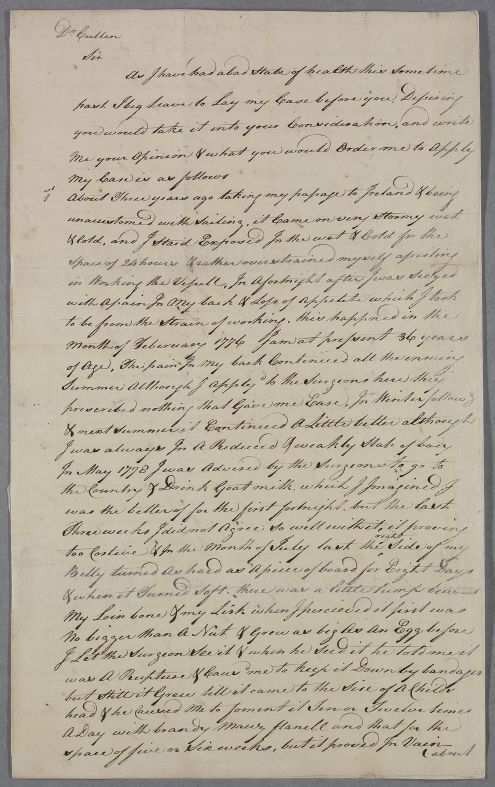 Dr Cullen
Sir
As I have had a bad State of health this some time
past I beg leave to Lay my Case before you, Desiring
you would take it into your Consideration, and write
me your Opinion & what you would Order me to Apply
My Case is as follows
1st About Three years ago taking my passage to Ireland & being
unaccustomed with Sailing, it Came on very Stormy wet
& Cold, and I Staid Exposed In the wet & Cold for the
space of 24 hours & rather overstrained myself assisting
in Working the Vessell, In A fortnight after I was Seized
with A pain In My back & Loss of Appetite which I took
to be from the Strain of working, this happned in the
Month of Feberuary 1776 I am at present 36 years
of Age, The pain In my back Continued all the ensuing
Summer Although I Apply'd to the Surgeons here they
prescribed nothing that Gave me Ease, In Winter follow'g
& next Summer it Continued A Little better although
I was always In A Reduced & weakly State of body
In May 1778 I was Advised by the Surgeons to go to
the Country & Drink Goat milk which I Imagined I
was the better of for the first fortnight, but the last
Three weeks I did not Agree So well with it, it proving
too Costive & In the Month of July last the right Side of my
Belly turned As hard as A piece of board for Eight Days
& when it Turned Soft, there was a little Lump between
My Loin bone & my Lisk when I perceived it first was
No bigger than A Nut & Grew as big As An Egg before
I Let the Surgeon See it & when he Seed it he told me it
was A Rupture & Caus'd me to keep it Down by bandages
but Still it Grew till it came to the Size of A Childs
head & he Caused Me to foment it Ten or Twelve times
A Day with brandy flanell and that for the
space of five or Six weeks, but it proved In Vain
about